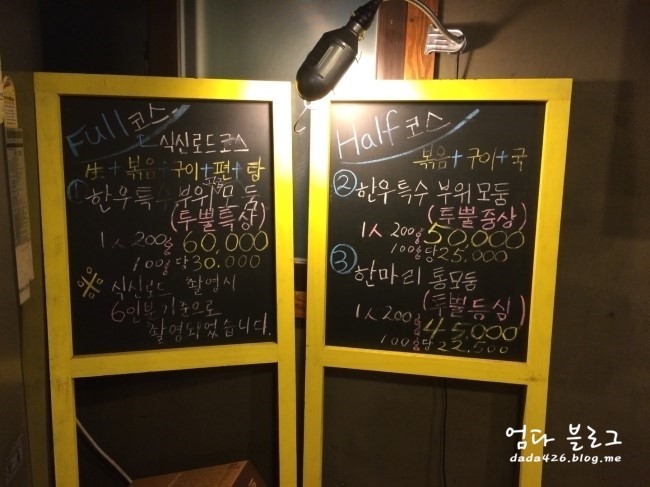 Full 코스
식신로드코스
生+볶음+구이+편+탕
① 한우특수부위모둠
(투뿔특상)
1人 200g 60.000
100g당 30.000
※ 식신로드 촬영시
6인분 기준으로
촬영되었습니다.
Half 코스
볶음+구이+국
② 한우특수 부위모둠
(투뿔중상)
1人 200g 50.000
100g당 25.000
③ 한마리 통모둠
(투뿔등심)
1人 200g 45.000
100g당 22.500
엄다 블로그
dada426.blog.me